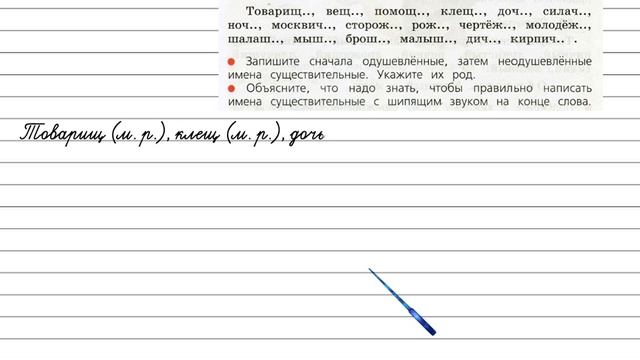 Товарищ.., вещ.., помощ.., клещ.., доч.., силач..,
ноч.., москвич.., сторож.., рож.., чертёж.., молодёж..,
шалаш.., мыш.., брош.., малыш.., дич.., кирпич.. .
Запишите сначала одушевлённые, затем неодушевлённые
имена существительные. Укажите их род.
Объясните, что надо знать, чтобы правильно написать
имена существительные с шипящим звуком на конце слова.
Товарищ (м. р.), клещ (м. р.), дочь